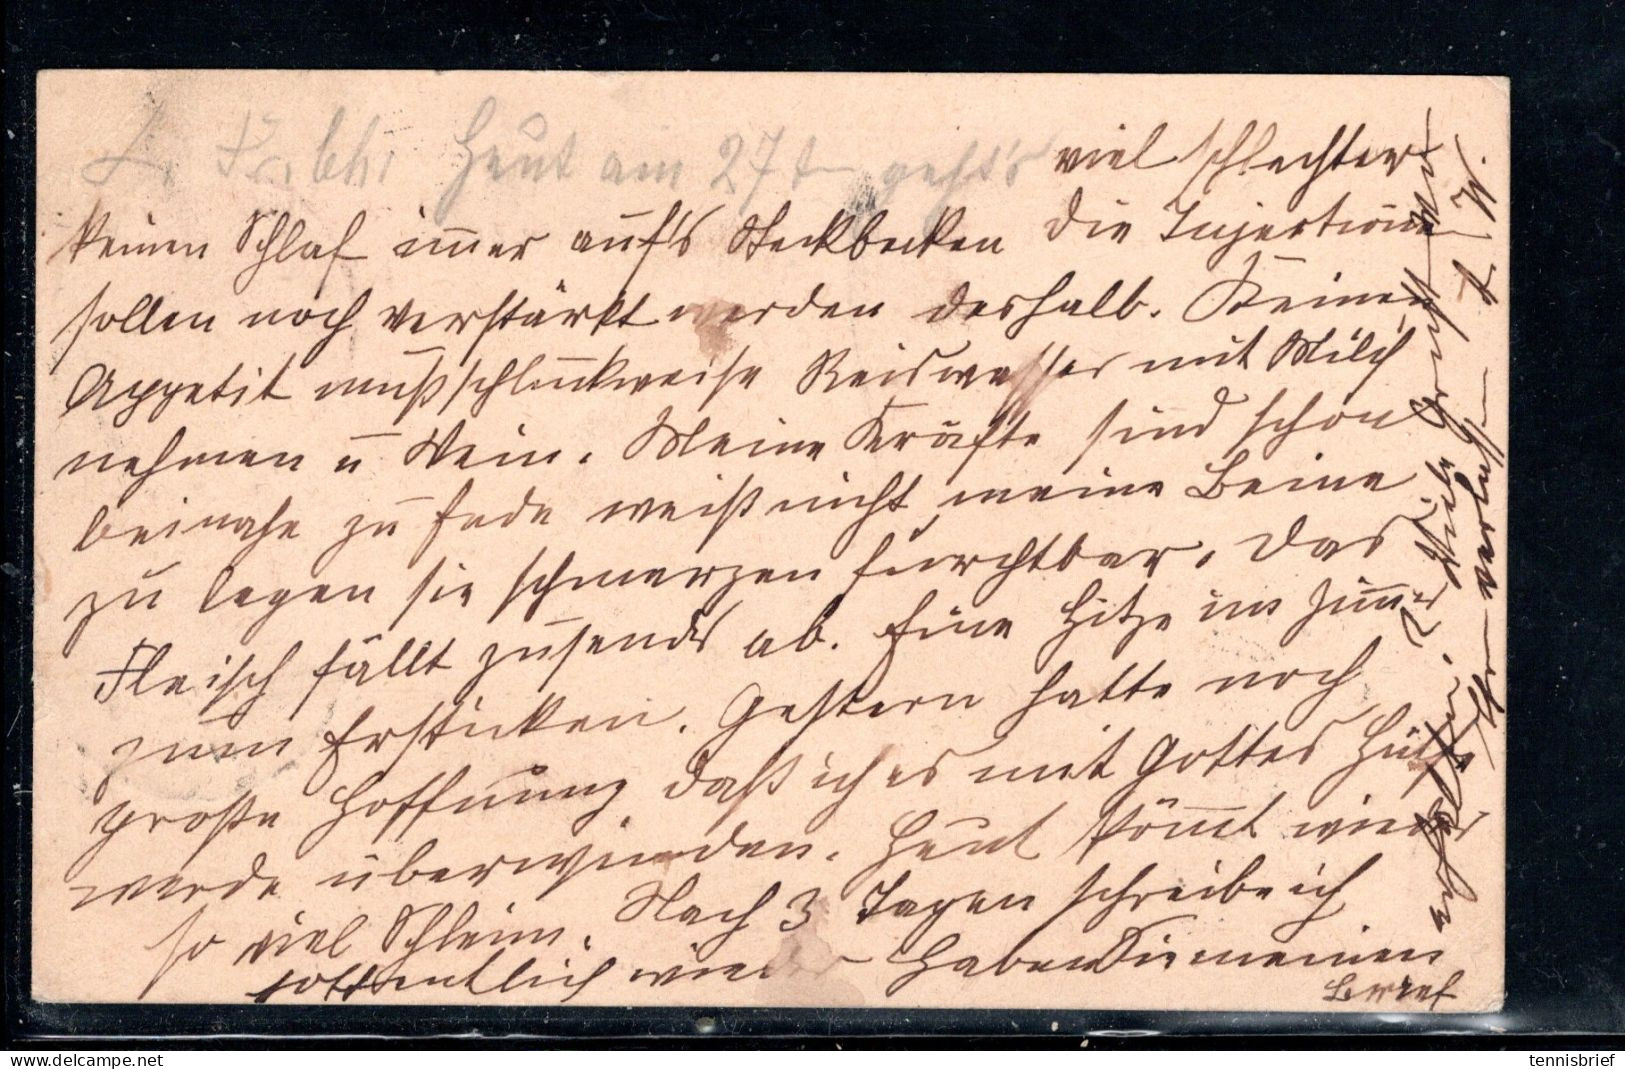 L. Heut am 27t geht's viel schlechter
keinen Schlaf im̄er auf's Steckbecken die Injectionen
sollen noch verstärkt werden deshalb. Keinen
Appetit muß schluckweise Reiswasser mit Milch
nehmen u Wein. Meine Kräfte sind schon
beinahe zu Ende weiß nicht meine Beine
zu legen sie schmerzen furchtbar. Das
Fleisch fällt zusends ab. Eine Hitze im Zim̄er
zum Ersticken. Gestern hatte noch
große Hoffnung daß ich es mit Gottes Hülfe
werde überwinden. Heut köm̄t wieder
so viel Schleim. Nach 3 Tagen schreibe ich
hoffentlich wieder Haben Sie meinen
Brief
erhalten? Viele Grüße
Ihr